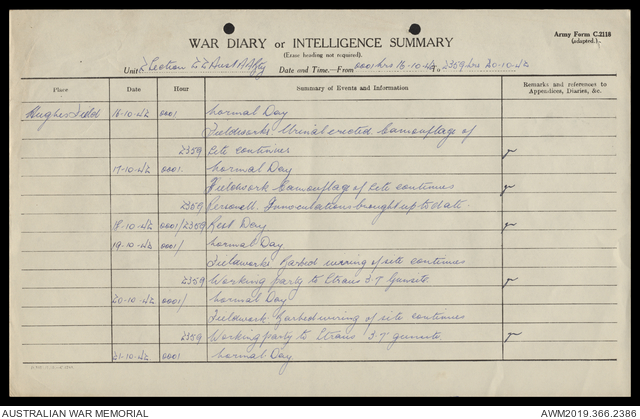 Army Form C.2118
(adapted.)
WAR DIARY or INTELLIGENCE SUMMARY
(Erase heading not required).
Unit Section Aust Date and Time.—From 0001 hrs 16-10-42 To 2359 hrs 20-10-42
Place Date Hour Summary of Events and Information Remarks and references to Appendices, Diaries, &c.
Hughes Field 16-10-42 0001 Normal Day
Fieldworks Urinal erected Camouflage of
2359 site continues
17-10-42 0001 Normal Day
Fieldwork Camouflage of site continues
2359 Personell. Innoculations brought up to date.
18-10-42 0001/2359 Rest Day
19-10-42 0001/ Normal Day
Fieldworks Barbed wiring of site continues
2359 Working party to Strauss 3.7 Gunsite.
20-10-42 0001/ Normal Day
Fieldwork. Barbed wiring of site continues
2359 Working party to Strauss 3.7 gunsite.
21-10-42 0001 Normal Day
AUSTRALIAN WAR MEMORIAL
AWM2019.366.2386